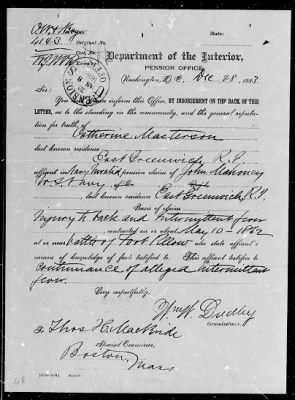 State:
4143
Original No.
Department of the Interior,
PENSION OFFICE,
Washington, D. C., Dec 28, 1883.
Sir:
You will inform this Office, BY INDORSEMENT ON THE BACK OF THE
LETTER, as to the standing in the community, and the general reputa-
tion for truth, of
Catherine Masterson
last known residence
East Greenwich, R. I.
affiant in Navy Invalid pension claim of John Mahoney
U.S. Navy
last known residence East Greenwich R.I.
Basis of claim
Injury to back and Intermittent fever
contracted on or about May 10 - 1862
at or near Battle of Fort Pillow also state affiant's
means of knowledge of fact testified to. This affiant testifies to
Continuance of alleged Intermittent
fever.
Very respectfully,
Wm W. Dudley
Commissioner.
To Thos H. MacBride
Special Examiner,
Boston,
Mass